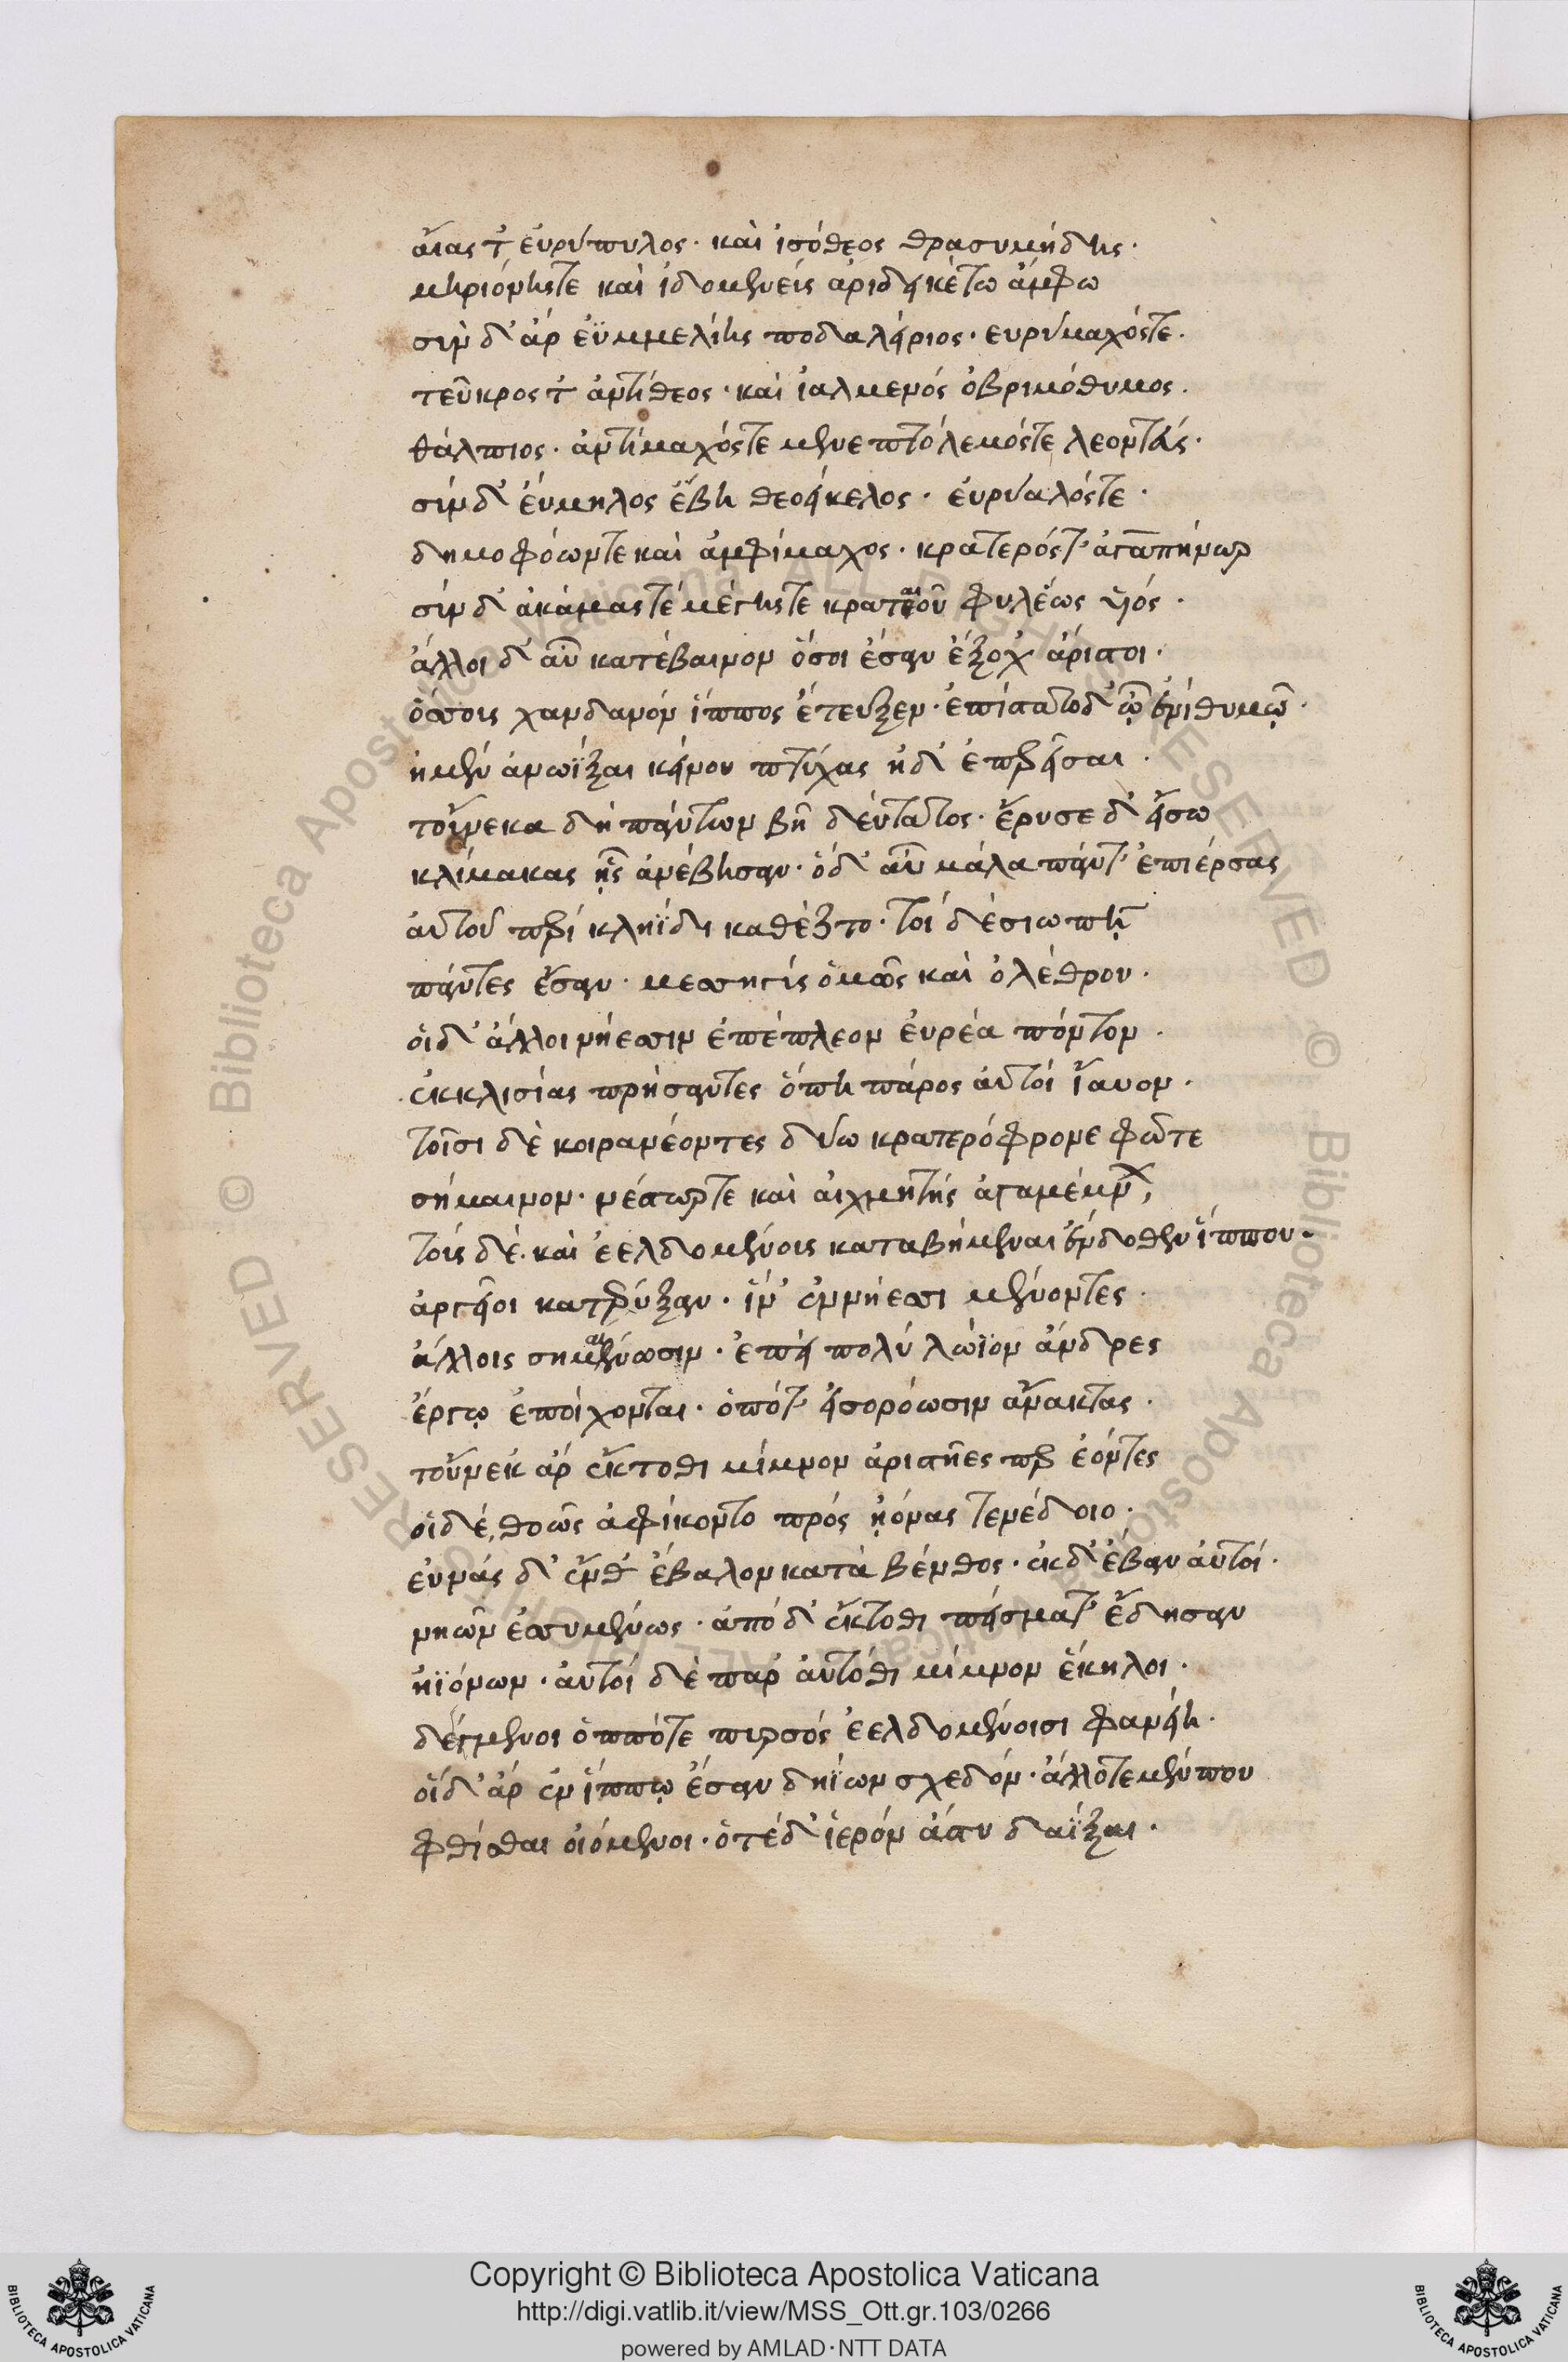 αἴας τ' ἐυρύπυλος· καὶ ἰσόθεος θρασυμήδης·
μηριόνης τε καὶ ἰδομενεὺς ἀριδεικέτω ἄμφω
σὺν δ' ἀρ ἐϋμμελίης ποδαλείριος· ευρύμαχός τε.
τεῦκρος τ' ἀντίθεος· καὶ ἰαλμενός ὀβριμόθυμος.
θάλπιος· ἀντίμαχός τε μενεπτόλεμός τε λεοντεύς·
σύν δ' ἐύμηλος ἔβη θεοείκελος· ἐυρύαλός τε·
δημοφόων τε καὶ ἀμφίμαχος· κρατερός τ' ἀγαπήνωρ
σύν δ' ἀκάμας τέ μέγης τε κραταιοῦ φυλέως υἱός·
ἄλλοι δ' αὖ κατέβαινον ὅσοι ἔσαν ἔξοχ' ἄριστοι·
ὅσσοις χανδανόν ἵππος ἔτευξεν· ἐπίστατο δ' ᾧ ἐνί θυμῷ·
ἠμὲν ἀνωΐξαι κείνου πτύχας ἠδ' ἐπερεῖσαι·
τοὔνεκα δή πάντων βῆ δεύτατος· ἔρυσε δ' εἴσω
κλίμακας ᾗς ἀνέβησαν· ὁδ' αὖ μάλα πάντ' ἐπιέρσας
ἀυτοῦ περί κληΐδι καθέζετο· τοί δέ σιωπῇ
πάντες ἔσαν· μεσσηγύς ὁμῶς καὶ ὀλέθρου·
οἱδ' ἄλλοι νήεσσιν ἐπέπλεον ἐυρέα πόντον·
ἐκκλισίας πρήσαντες ὅπη πάρος ἀυτοί ἴαυον·
τοῖσι δὲ κοιρανέοντες δύω κρατερόφρονε φῶτε
σήμαινον· νέστωρ τε καὶ ἀιχμητής ἀγαμέμνων,
τούς δέ. καὶ ἐελδομένους καταβήμεναι ἔνδοθεν ἵππου·
ἀργεῖοι κατερύξαν· ἵν' ἐννήεσσι μένοντες·
ἄλλοις σημαίνωσιν· ἐπεί πολύ λώϊον ἄνδρες
ἔργῳ ἐποίχονται· ὁπότ' εἰσορόωσιν ἄνακτας·
τοὔνεκ ἄρ ἔκτοθι μίμνον ἀριστῆες περ ἐόντες
οἱδέ, θοῶς ἀφίκοντο πρός ᾐόνας τενέδοιο·
εὐνάς δ' ἔνθ' ἔβαλον κατὰ βένθος· ἐκδ' ἔβαν ἀυτοί·
νηῶν ἐσσυμένως· ἀπό δ' ἔκτοθι πείσματ' ἔδησαν
ἠϊόνων· ἀυτοί δὲ παρ ἀυτόθι μίμνον ἕκηλοι·
δέγμενοι ὁππότε πυρσός ἐελδομένοισι φανείη·
οἱδ' ἀρ ἐν ἵππῳ ἔσαν δηΐων σχεδόν· ἄλλοτε μέν που
φθίσθαι οἰόμενοι· ὁτέ δ' ἱερόν ἄστυ δαΐξαι·
Copyright © Biblioteca Apostolica Vaticana
http://digi.vatlib.it/view/MSS_Ott.gr.103/0266
powered by AMLAD·NTT DATA